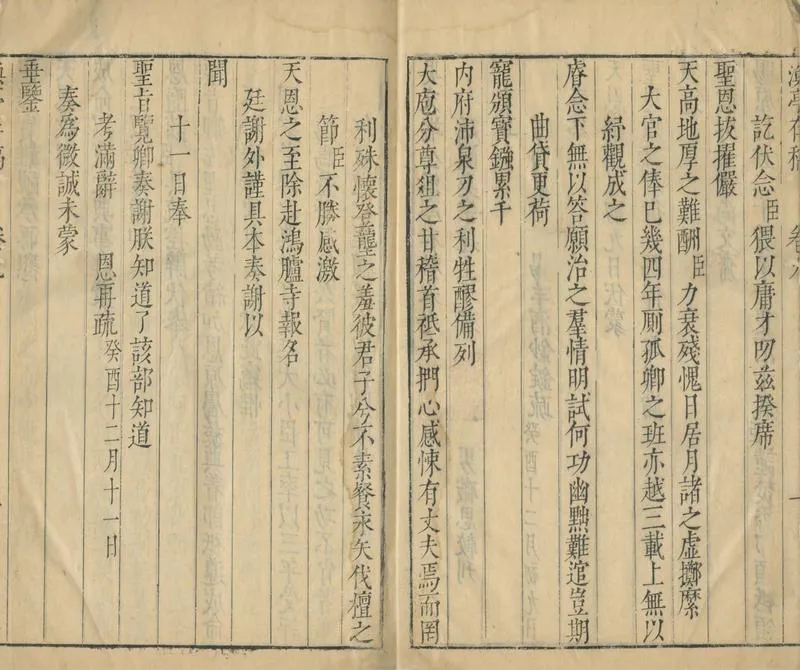 訖伏念臣猥以庸才叨茲揆席
聖恩拔擢嚴
天高地厚之難酬臣力衰殘愧日居月諸之虛擲縻
大官之俸已幾四年厠孤卿之班亦越三載上無以
紓觀成之
睿念下無以答願治之羣情明試何功幽黜難逭豈期
曲貸更荷
寵頒寶鏹累千
内府沛泉刀之利牲醪備列
大庖分尊俎之甘稽首祗承捫心感悚有丈夫焉而罔
利殊懷登壟之羞彼君子兮不素餐永矢伐檀之
節臣不勝感激
天恩之至除赴鴻臚寺報名
廷謝外謹具本奏謝以
聞
十一日奉
聖旨覽卿奏謝朕知道了該部知道
考滿辭 恩再疏癸酉十二月十一日
奏爲微誠未蒙
垂鑒